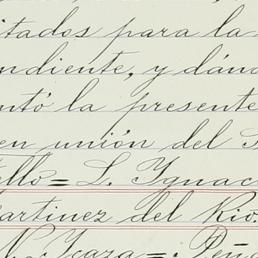 itados para la
ndiente, y dánd
ntó la presente
en unión del S
ello = L. Ignac
artinez del Rio.
N. Icaza =. Peña